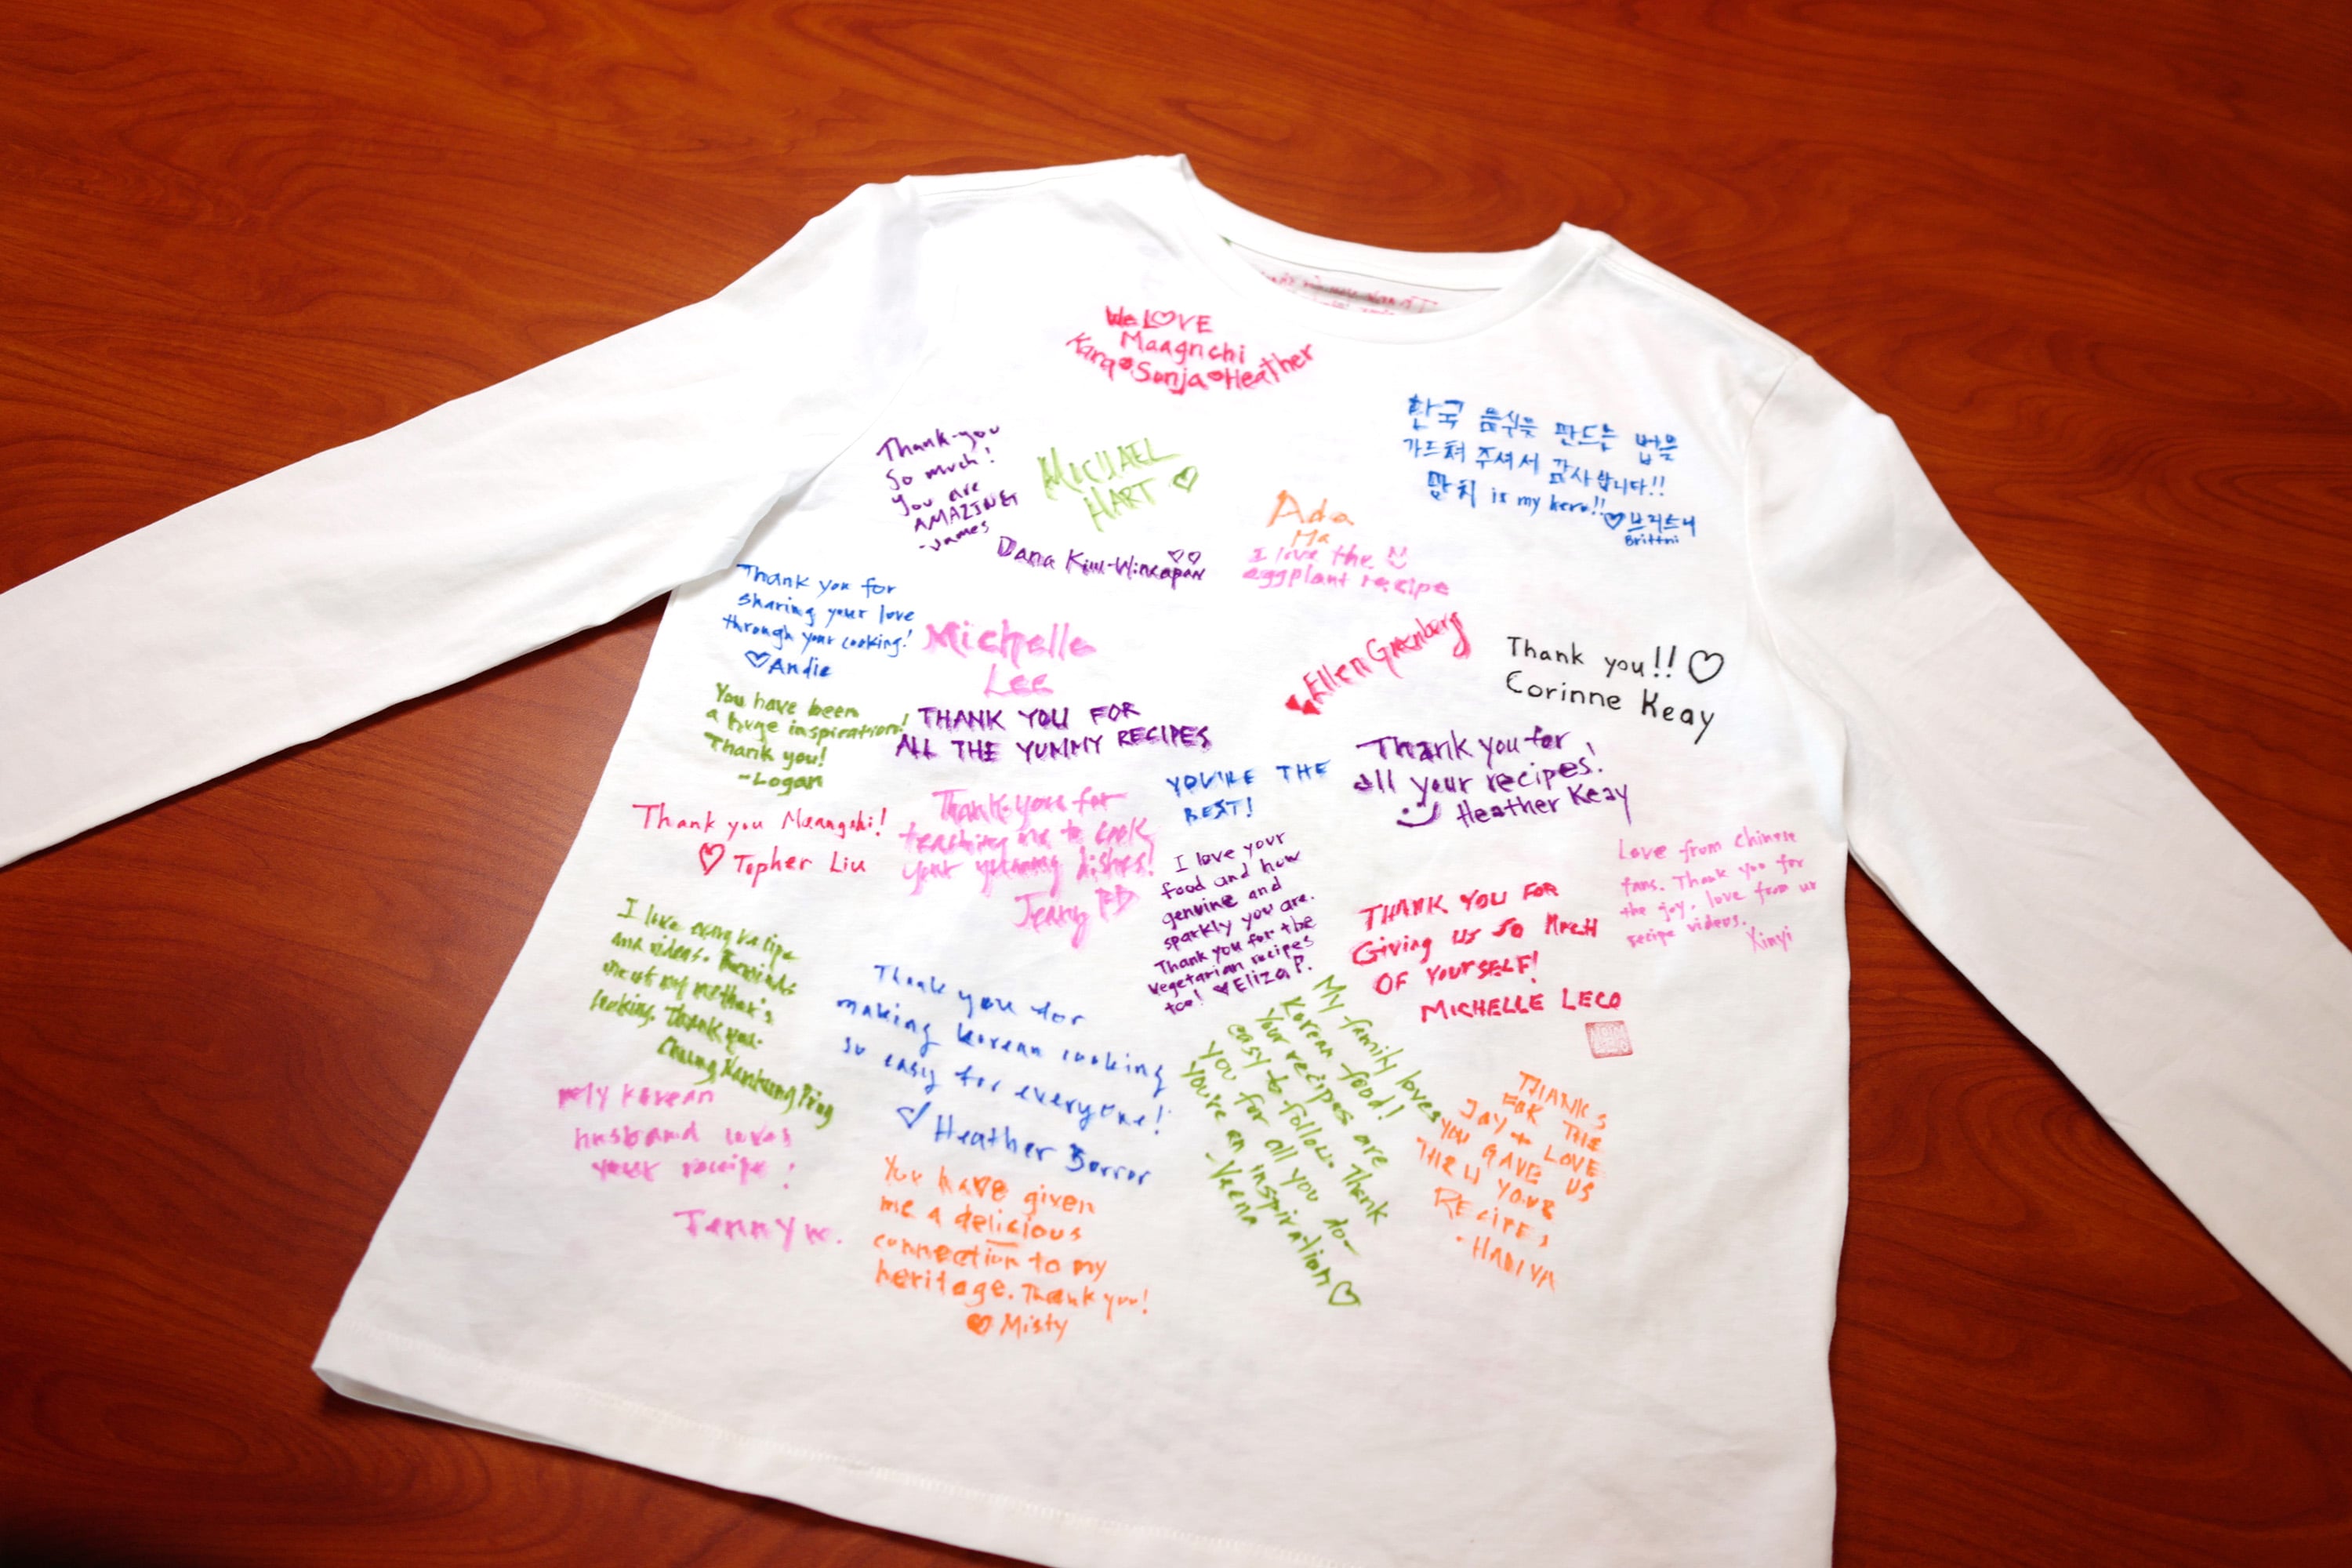 We LOVE
Maagnchi
Kara Sonja Heather
Thank-you
So much!
you are
AMAZING
-James
MICHAEL
HART
Dana
Ada
Ma
I love the
eggplant recipe
한국 음식을 만드는 법을
가드쳐 주셔서 감사합니다!!
망치 is my hero!! 브리트니
Brittni
Thank you for
sharing your love
through your cooking!
Andie
Michelle
Lee
THANK YOU FOR
ALL THE YUMMY RECIPES
Ellen Greenberg
Thank you!!
Corinne Keay
You have been
a huge inspiration!
Thank you!
-Logan
YOU'RE THE
BEST!
Thank you for
all your recipes!
Heather Keay
Thank you Maangchi!
Topher Liu
Thank you for
teaching me to cook
your yummy dishes!
Jenny
I love your
food and how
genuine and
sparkly you are.
Thank you for the
vegetarian recipes
too! Eliza P.
THANK YOU FOR
Giving us so Much
OF YourSELF!
MICHELLE LECO
Love from Chinese
fans. Thank you for
the joy, love from ur
recipe videos.
Xinyi
I love every recipe
and videos. Reminds
me of my mother's
cooking. Thank you.
Chung
Thank you for
making korean cooking
so easy for everyone!
Heather Borror
My family loves
Korean food!
Your recipes are
easy to follow. Thank
you for all you do-
You're an inspiration
-Veena
THANKS
FOR THE
JOY + LOVE
YOU GAVE US
THRU YOUR
RECIPES
-HADIYA
My korean
husband loves
your recipe!
Jenny w.
You have given
me a delicious
connection to my
heritage. Thank you!
Misty